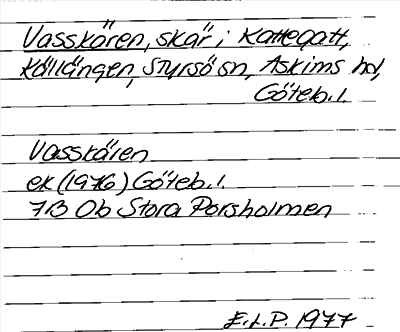 Vasskären, skär i Kattegatt,
Källängen, Styrsö sn, Askims hd,
Göteb. l.
Vasskären
ek (1976) Göteb. l.
7B 0b Stora Porsholmen
E.L.P. 1977